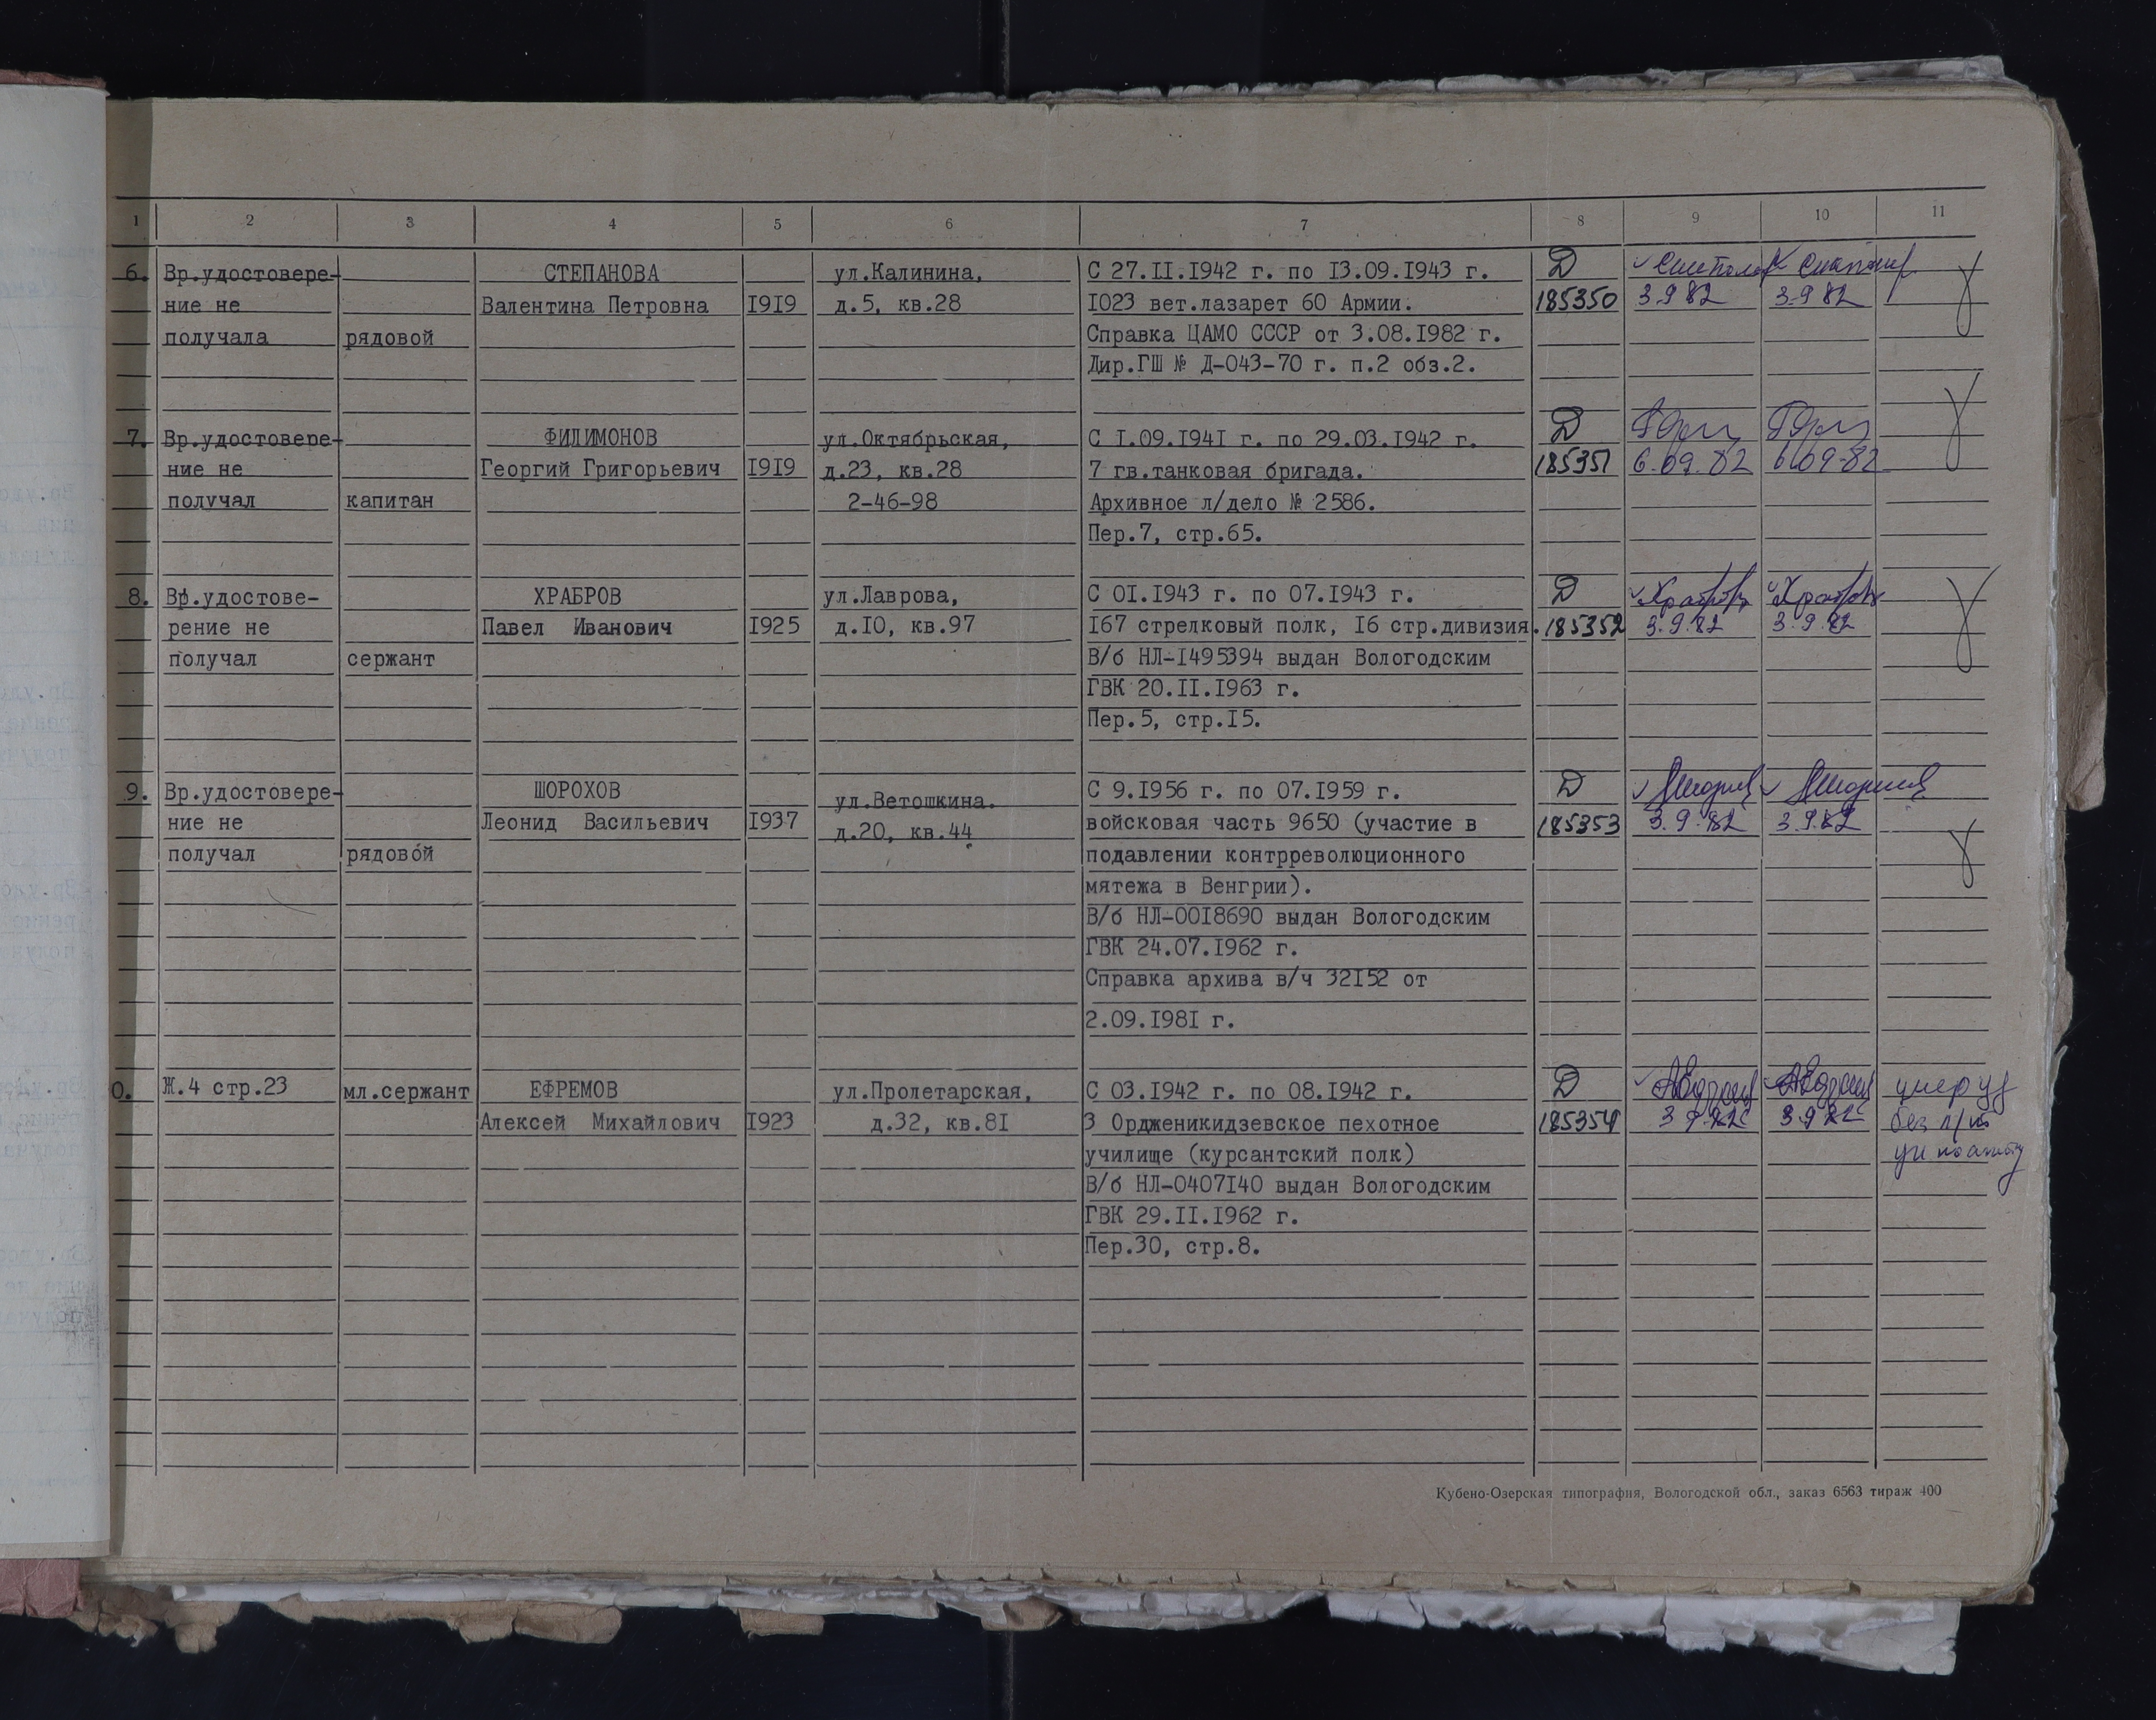 1 2 3 4 5 6 7 8 9 10 11
6. Вр.удостовере- СТЕПАНОВА ул.Калинина, С 27.II.I942 г. по I3.09.I943 г. Д
ние не Валентина Петровна I9I9 д.5, кв.28 I023 вет.лазарет 60 Армии. 185350 3.9.82 3.9.82
получала рядовой Справка ЦАМО СССР от 3.08.I982 г.
Дир.ГШ № Д-043-70 г. п.2 обз.2.
7. Вр.удостовере- ФИЛИМОНОВ ул.Октябрьская, С I.09.I94I г. по 29.03.I942 г. Д
ние не Георгий Григорьевич I9I9 д.23, кв.28 7 гв.танковая бригада. 185351 6.09.82 6.09.82
получал капитан 2-46-98 Архивное л/дело № 2586.
Пер.7, стр.65.
8. Вр.удостове- ХРАБРОВ ул.Лаврова, С 0I.I943 г. по 07.I943 г. Д Храбров Храбров
рение не Павел Иванович I925 д.I0, кв.97 I67 стрелковый полк, I6 стр.дивизия. 185352 3.9.82 3.9.82
получал сержант В/б НЛ-I495394 выдан Вологодским
ГВК 20.II.I963 г.
Пер.5, стр.I5.
9. Вр.удостовере- ШОРОХОВ ул.Ветошкина. С 9.I956 г. по 07.I959 г. Д
ние не Леонид Васильевич I937 д.20, кв.44 войсковая часть 9650 (участие в 185353 3.9.82 3.9.82
получал рядовой подавлении контрреволюционного
мятежа в Венгрии).
В/б НЛ-00I8690 выдан Вологодским
ГВК 24.07.I962 г.
Справка архива в/ч 32I52 от
2.09.I98I г.
0. Ж.4 стр.23 мл.сержант ЕФРЕМОВ ул.Пролетарская, С 03.I942 г. по 08.I942 г. Д
Алексей Михайлович I923 д.32, кв.8I 3 Орджоникидзевское пехотное 185354 3.9.82 3.9.82 без
училище (курсантский полк)
В/б НЛ-0407I40 выдан Вологодским
ГВК 29.II.I962 г.
Пер.30, стр.8.
Кубено-Озерская типография, Вологодской обл., заказ 6563 тираж 400